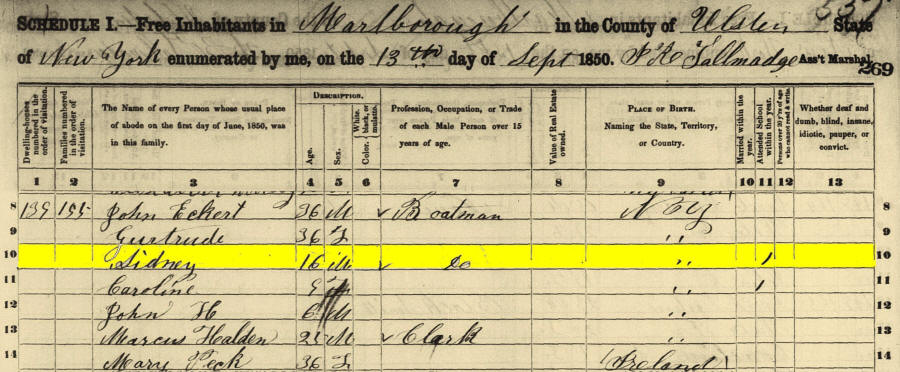 SCHEDULE I.—Free Inhabitants in Marlborough in the County of Ulster State
of New York enumerated by me, on the 13th day of Sept 1850. Tallmadge Ass't Marshal.
269
Dwelling-houses numbered in the order of visitation.
Families numbered in the order of visitation.
The Name of every Person whose usual place of abode on the first day of June, 1850, was in this family.
DESCRIPTION.
Age.
Sex.
Color. White, black, or mulatto.
Profession, Occupation, or Trade of each Male Person over 15 years of age.
Value of Real Estate owned.
PLACE OF BIRTH.
Naming the State, Territory, or Country.
Married within the year.
Attended School within the year.
Persons over 20 y'rs of age who cannot read & write.
Whether deaf and dumb, blind, insane, idiotic, pauper, or convict.
1 2 3 4 5 6 7 8 9 10 11 12 13
8 John Eckert 36 M Boatman N Y 8
9 Gertrude 36 F " 9
10 Sidney 16 M Do " 1 10
11 Caroline 9 " 1 11
12 John H 6 M " 12
13 Marcus Halden 25 M Clark " 13
14 Mary Peck 36 F Ireland 14